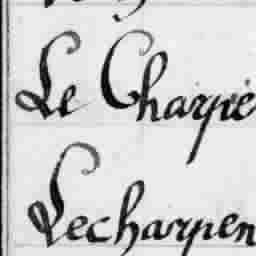 Le Charpe
Lecharpen